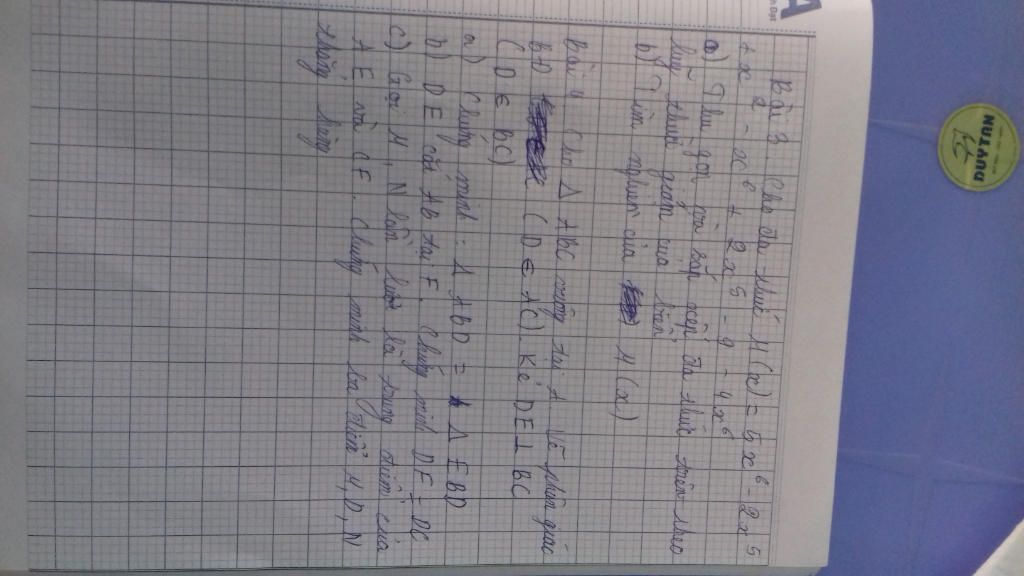 Bài 3. Cho đa thức M(x) = 5x⁶ - 2x⁵
+ x² - x⁶ + 2x⁵ - 9 - 4x⁶
a) Thu gọn rồi sắp xếp đa thức trên theo
lũy thừa giảm của biến
b) Tìm nghiệm của M(x)
Bài 4 Cho Δ ABC vuông tại A. Vẽ phân giác
BD (D ∈ AC). Kẻ DE ⊥ BC
(D ∈ BC)
a) Chứng minh: Δ ABD = Δ EBD
b) DE cắt AB tại F. Chứng minh DF = DC
c) Gọi M, N lần lượt là trung điểm của
AE và CF. Chứng minh ba điểm M, D, N
thẳng hàng
A
DUATUN